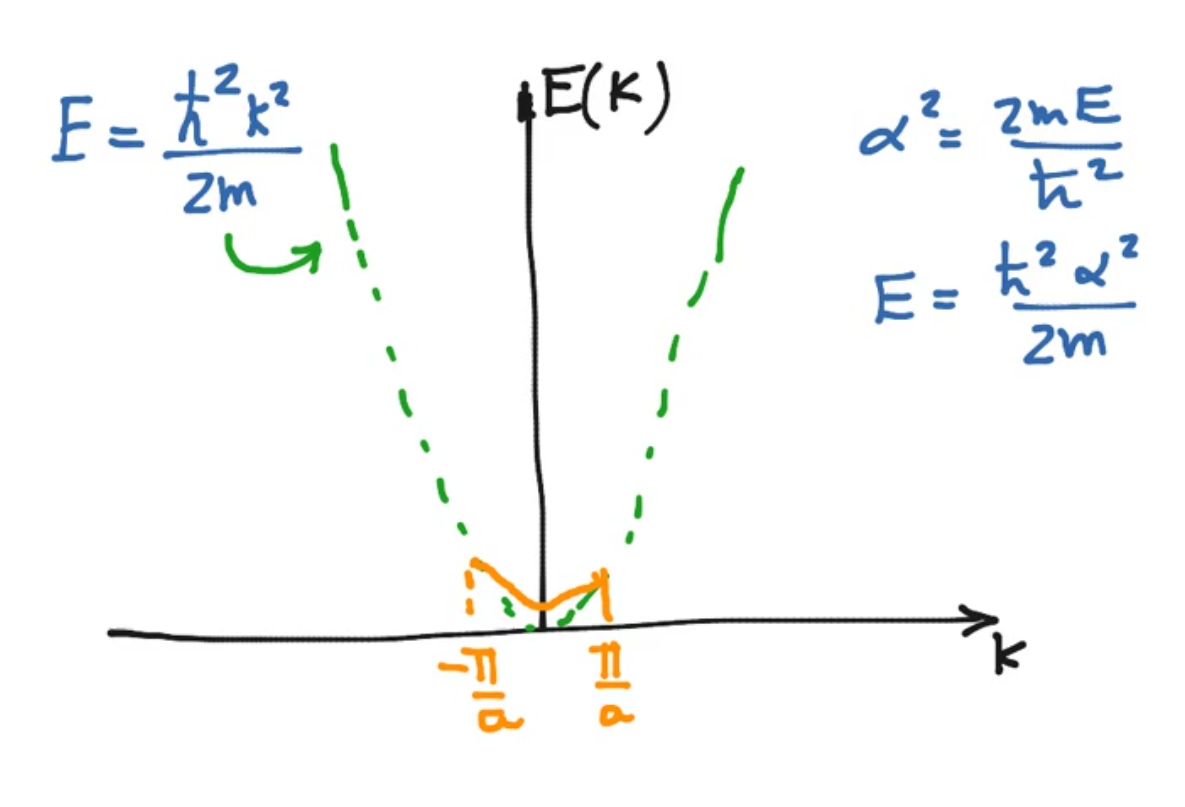 E = ħ²k² / 2m
E(k)
α² = 2mE / ħ²
E = ħ² α² / 2m
k
-π/a
π/a